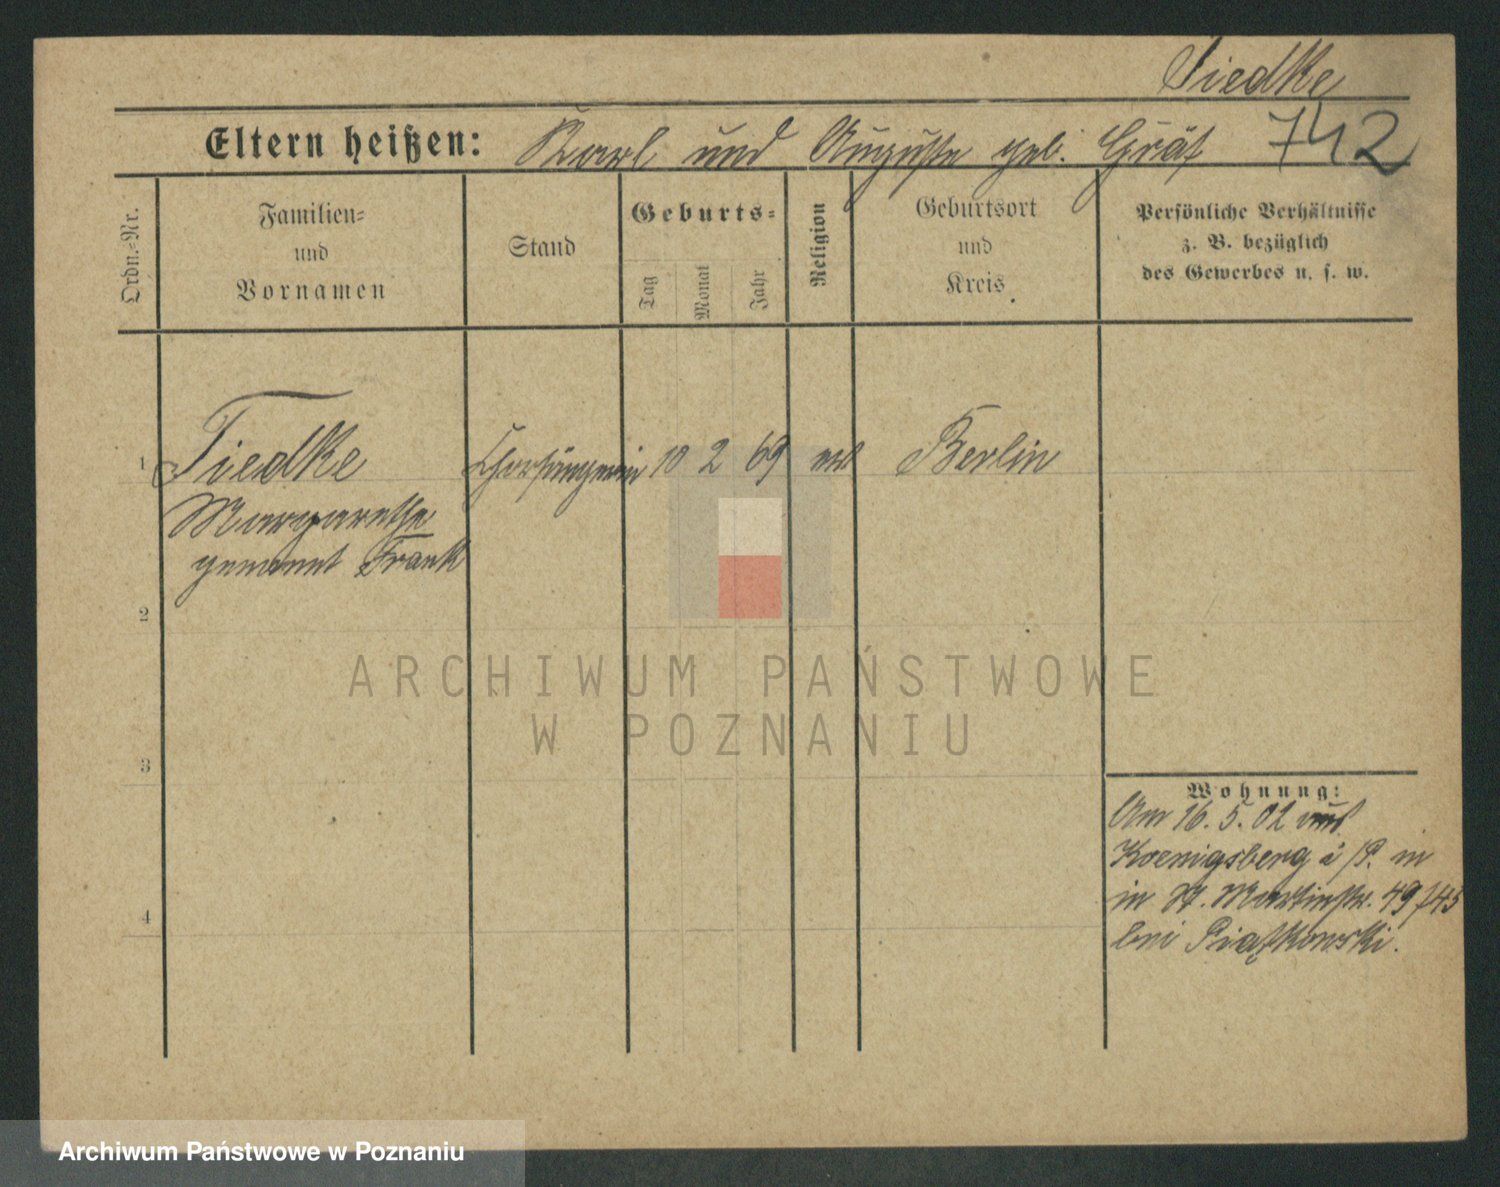 Tiedke
Eltern heißen: Karl und Auguste geb. Gräf 742
Ordn.=Nr.
Familien=
und
Vornamen
Stand
Geburts=
Tag
Monat
Jahr
Religion
Geburtsort
und
Kreis
Persönliche Verhältnisse
z. B. bezüglich
des Gewerbes u. s. w.
1 Tiedke Chorsängerin 10 2 69 Berlin
Margarethe
genannt Frank
2
3
4
Wohnung:
Am 16. 5. 02 aus
Koenigsberg i/P. in
in St. Martinstr. 49/43
bei Piątkowski.
ARCHIWUM PAŃSTWOWE
W POZNANIU
Archiwum Państwowe w Poznaniu